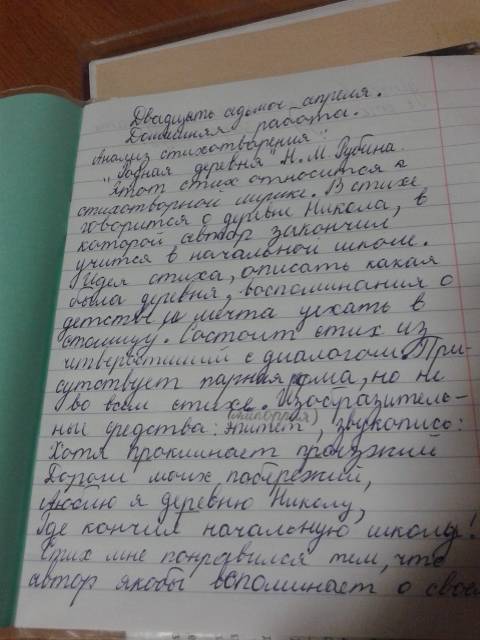 Двадцать седьмое апреля.
Домашняя работа.
Анализ стихотворения
"Родная деревня" Н.М. Рубина.
Этот стих относится к
стихотворной лирике. В стихе
говорится о деревни Никола, в
которой автор закончил
учится в начальной школе.
Идея стиха, описать какая
была деревня, воспоминания о
детстве и мечта уехать в
столицу. Состоит стих из
четверостиший с диалогом. При-
сутствует парная рифма, но не
во всем стихе. Изобразитель-
ные средства: эпитет, звукопись:
Хотя проклинает проезжий
Дороги моих побережий,
Люблю я деревню Николу,
Где кончил начальную школу!
Стих мне понравился тем, что
автор якобы вспоминает о свое